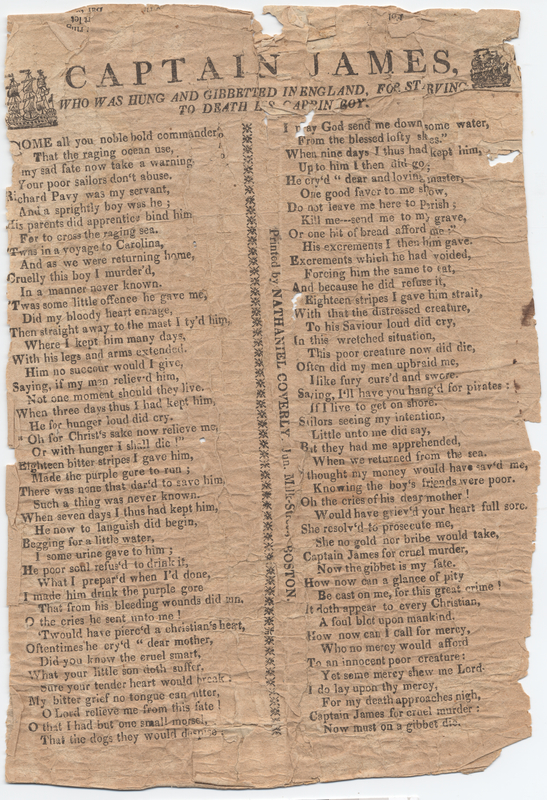 CAPTAIN JAMES,
WHO WAS HUNG AND GIBBETTED IN ENGLAND, FOR STARVING
TO DEATH HIS CABBIN BOY.
COME all you noble bold commanders,
That the raging ocean use,
my sad fate now take a warning,
Your poor sailors don't abuse.
Richard Pavy was my servant,
And a sprightly boy was he ;
His parents did apprentice bind him
For to cross the raging sea.
'Twas in a voyage to Carolina,
And as we were returning home,
Cruelly this boy I murder'd,
In a manner never known.
'Twas some little offence he gave me,
Did my bloody heart enrage,
Then straight away to the mast I ty'd him,
Where I kept him many days,
With his legs and arms extended,
Him no succour would I give,
Saying, if my men reliev'd him,
Not one moment should they live.
When three days thus I had kept him,
He for hunger loud did cry,
" Oh for Christ's sake now relieve me,
Or with hunger I shall die !"
Eighteen bitter stripes I gave him,
Made the purple gore to run ;
There was none that dar'd to save him,
Such a thing was never known.
When seven days I thus had kept him,
He now to languish did begin,
Begging for a little water,
I some urine gave to him ;
He poor soul refus'd to drink it,
What I prepar'd when I'd done,
I made him drink the purple gore
That from his bleeding wounds did run.
O the cries he sent unto me !
'Twould have pierc'd a christian's heart,
Oftentimes he cry'd " dear mother,
Did you know the cruel smart,
What your little son doth suffer,
Sure your tender heart would break :
My bitter grief no tongue can utter,
O Lord relieve me from this fate !
O that I had but one small morsel,
That the dogs they would
Printed by NATHANIEL COVERLY, Jun. Milk-Street, BOSTON.
I pray God send me down some water,
From the blessed lofty skies."
When nine days I thus had kept him,
Up to him I then did go ;
He cry'd " dear and loving master,
One good favor to me show,
Do not leave me here to Perish ;
Kill me---send me to my grave,
Or one bit of bread afford me :"
His excrements I then him gave.
Excrements which he had voided,
Forcing him the same to eat,
And because he did refuse it,
Eighteen stripes I gave him strait,
With that the distressed creature,
To his Saviour loud did cry,
In this wretched situation,
This poor creature now did die,
Often did my men upbraid me,
I like fury curs'd and swore.
Saying, I'll have you hang'd for pirates :
If I live to get on shore.
Sailors seeing my intention,
Little unto me did say,
But they had me apprehended,
When we returned from the sea.
thought my money would have sav'd me,
Knowing the boy's friends were poor.
Oh the cries of his dear mother !
Would have griev'd your heart full sore.
She resolv'd to prosecute me,
She no gold nor bribe would take,
Captain James for cruel murder,
Now the gibbet is my fate.
How now can a glance of pity
Be cast on me, for this great crime !
It doth appear to every Christian,
A foul blot upon mankind.
How now can I call for mercy,
Who no mercy would afford
To an innocent poor creature :
Yet some mercy shew me Lord.
I do lay upon thy mercy,
For my death approaches nigh,
Captain James for cruel murder :
Now must on a gibbet die.